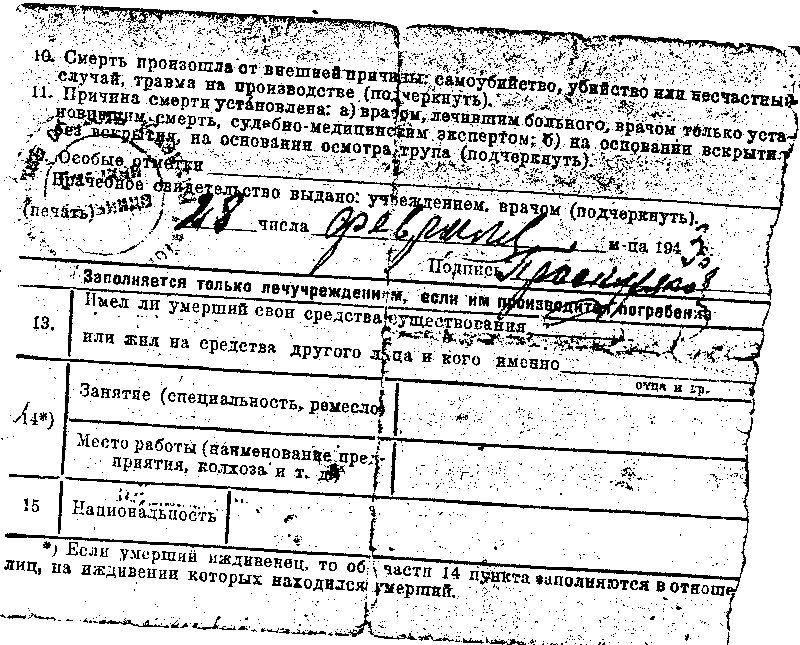 10. Смерть произошла от внешней причины: самоубийство, убийство или несчастный
случай, травма на производстве (подчеркнуть).
11. Причина смерти установлена: а) врачом, лечившим больного, врачом только уста-
новившим смерть, судебно-медицинским экспертом; б) на основании вскрытия
без вскрытия, на основании осмотра трупа (подчеркнуть).
Особые отметки
Врачебное свидетельство выдано: учреждением, врачом (подчеркнуть).
(печать) 28 числа февраля м-ца 1943
Подпись
Заполняется только лечучреждением, если им производится погребение
13. Имел ли умерший свои средства существования
или жил на средства другого лица и кого именно
отца и др.
14*) Занятие (специальность, ремесло)
Место работы (наименование пред-
приятия, колхоза и т. д.)
15 Национальность
*) Если умерший иждивенец, то об части 14 пункта заполняются в отноше
лиц, на иждивении которых находился умерший.